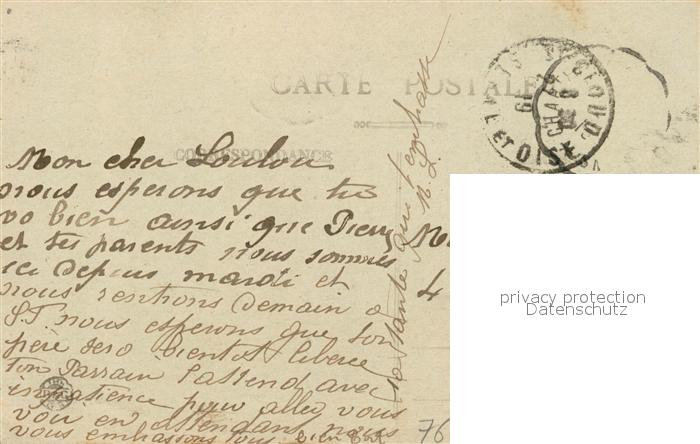 CARTE POSTALE
CORRESPONDANCE
Mon cher Loulou
nous esperons que tu
va bien ainsi que Pierre
et tes parents nous sommes
ici depuis mardi et
nous rentrons demain a
S.T nous esperons que ton
père sera bientot libere
ton Parrain l'attend avec
impatience pour aller vous
voir en attendant nous
vous embrassons tous bien fort
ta tante qui t'embrasse
M. L.
M
4
76
ST CLOUD
ET OISE
privacy protection
Datenschutz